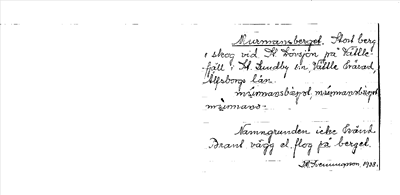 Murmansberget. Stort berg
i skog vid St. Lövsjön på Vättle-
fjäll i St. Lundby s:n Vättle härad,
Älfsborgs län.
mùrmansbärjet, mùrmansbärjet
mùrmans-
Namngrunden icke känd.
Brant vägg el. flog på berget.
1938.